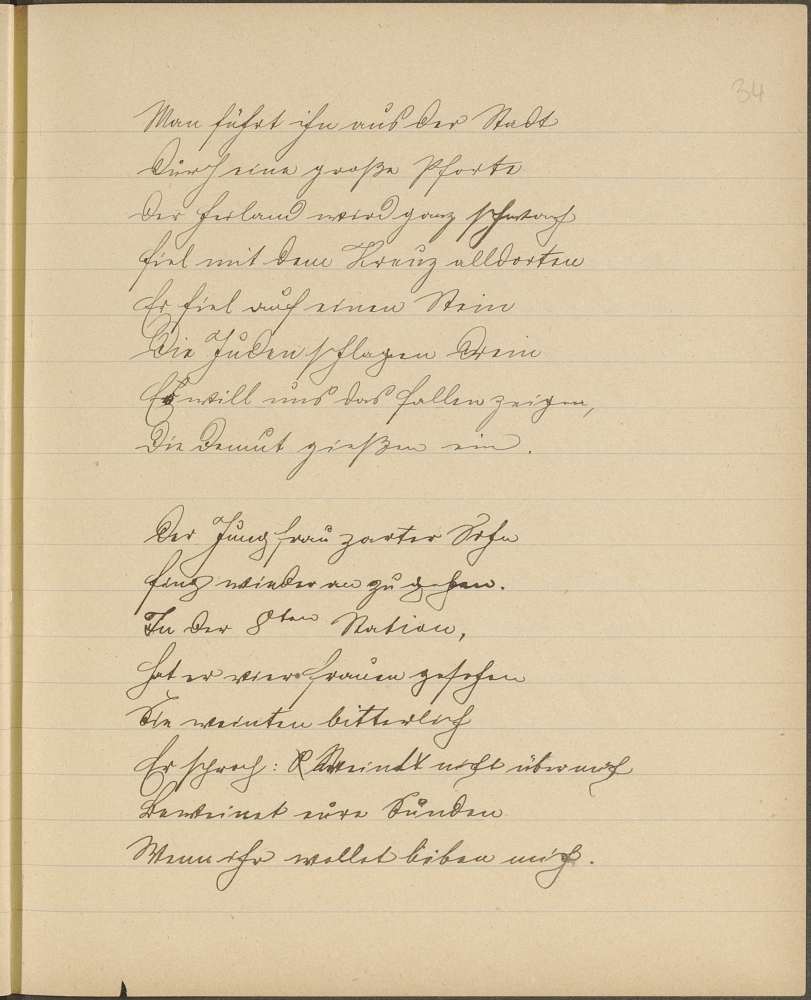 34
Man führt ihn aus der Stadt
Durch eine große Pforte
Der Heiland wird ganz schwach
fiel mit dem Kreuz alldorten
Er fiel auf einen Stein
Die Juden schlagen drein
Er will uns das fallen zeigen,
Die Demut gießen ein.
Der Jungfrau zarter Sohn
fing wieder an zu gehen.
In der 8ten Station,
hat er vier frauen gesehen
Sie weinten bitterlich
Er sprach: Weint nicht über mich
Beweinet eure Sünden
Wenn ihr wollet lieben mich.